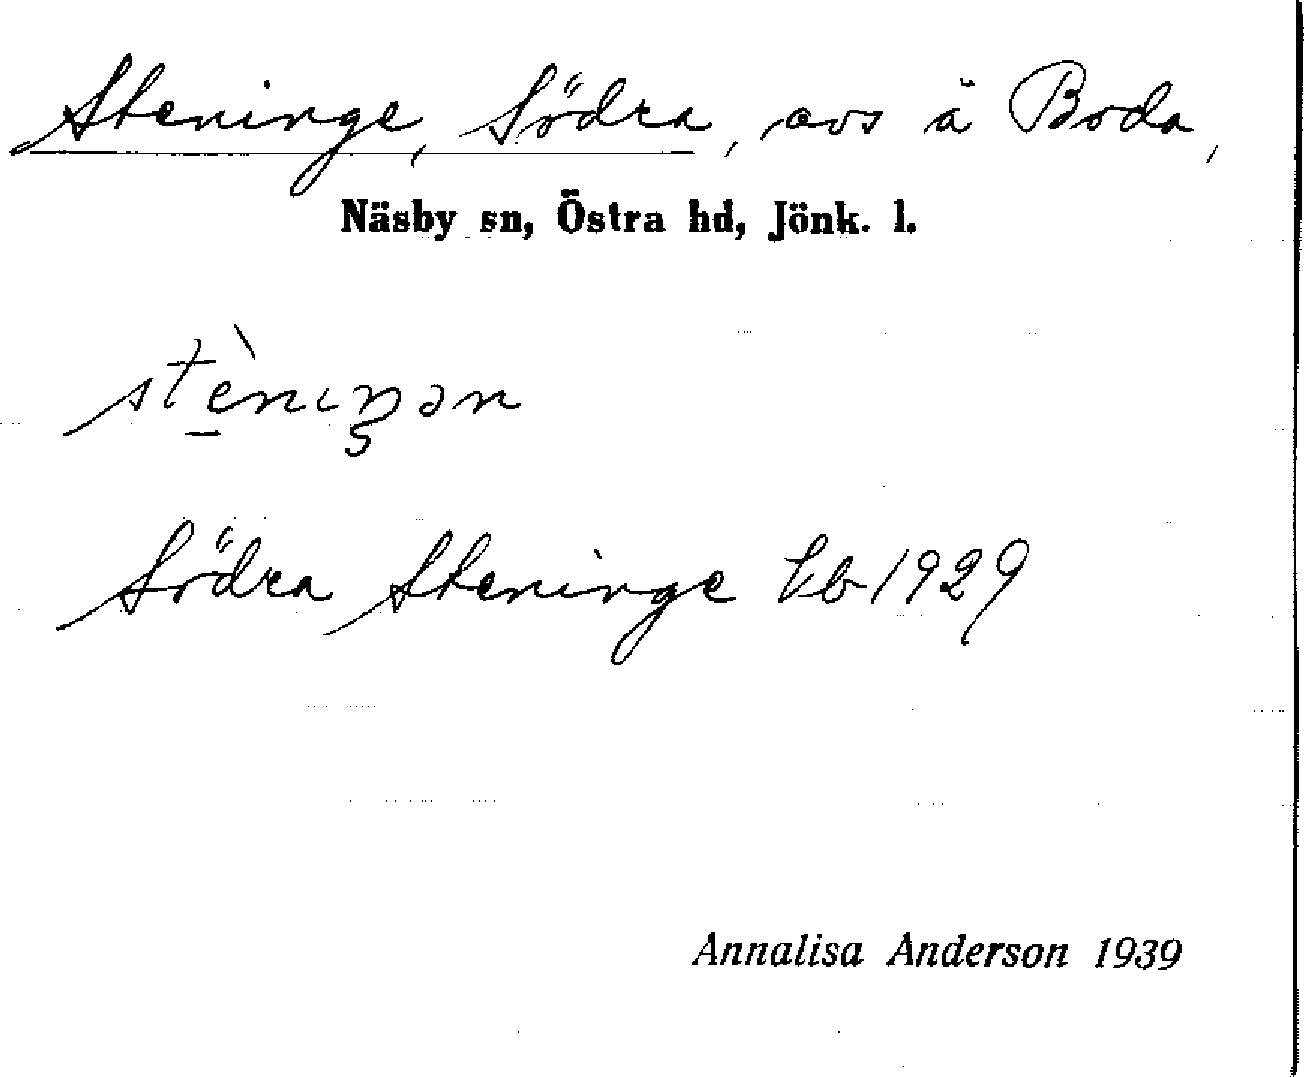 Steninge, Södra, avs å Boda,
Näsby sn, Östra hd, Jönk. l.
Södra Steninge kb 1929
Annalisa Anderson 1939